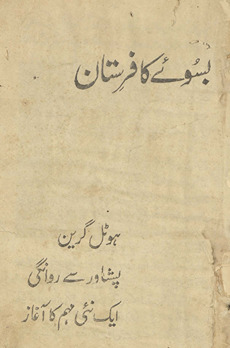 بسوئے کافرستان
ہوٹل گرین
پشاور سے روانگی
ایک نئی مہم کا آغاز